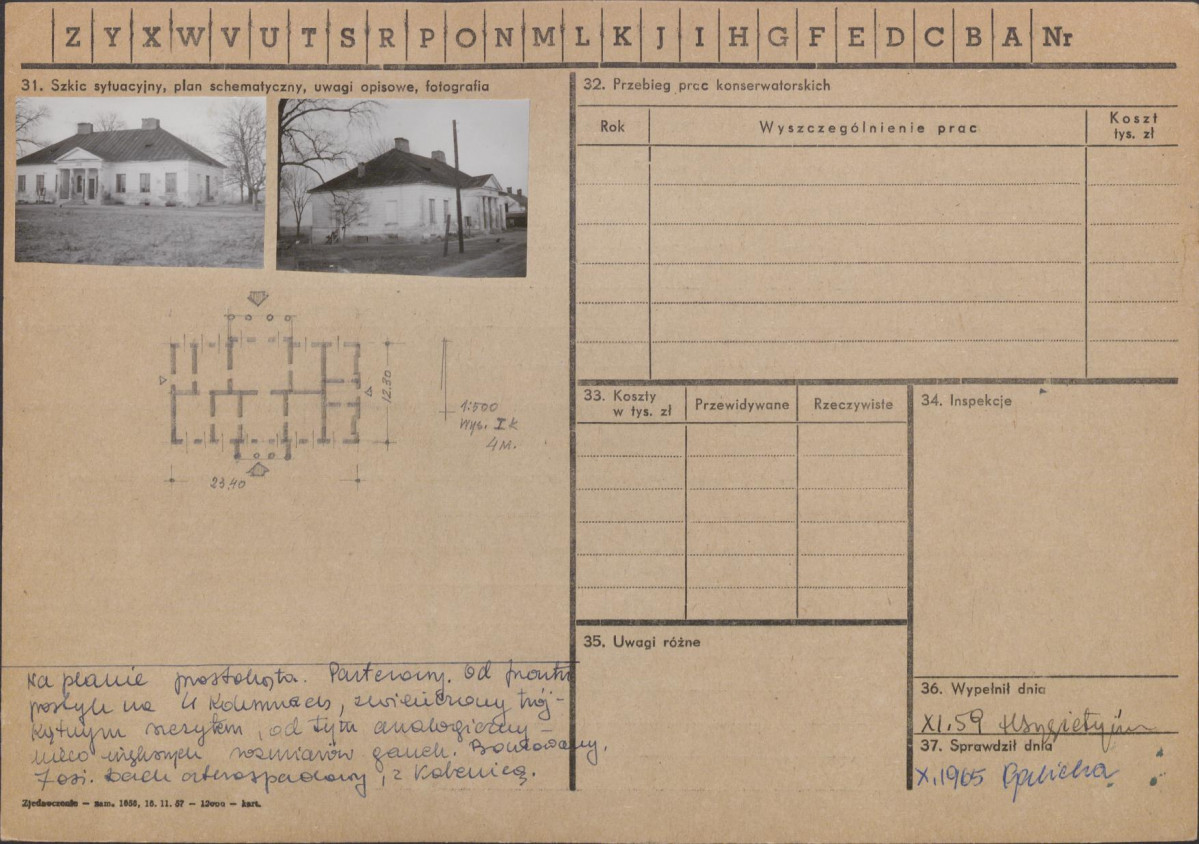 Z Y X W V U T S R P O N M L K J I H G F E D C B A Nr
31. Szkic sytuacyjny, plan schematyczny, uwagi opisowe, fotografia
12.30
1:500
Wys. I k
4 m.
23.40
Na planie prostokąta. Parterowy. Od frontu
portyk na 4 kolumnach, zwieńczony trój-
kątnym szczytem, od tyłu analogiczny -
nieco większych rozmiarów ganek. Boniowany,
7 osi. Dach czterospadowy, z kalenicą.
Zjednoczenie — zam. 1656, 16. 11. 57 — 12000 — kart.
32. Przebieg prac konserwatorskich
Rok
Wyszczególnienie prac
Koszt
tys. zł
33. Koszty
w tys. zł
Przewidywane
Rzeczywiste
34. Inspekcje
35. Uwagi różne
36. Wypełnił dnia
XI.59
37. Sprawdził dnia
X.1965